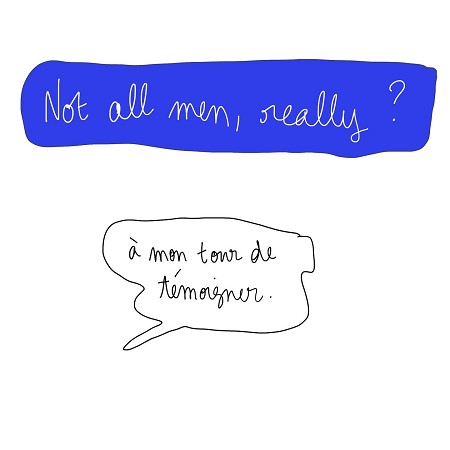 Not all men, really ?
à mon tour de
témoigner.